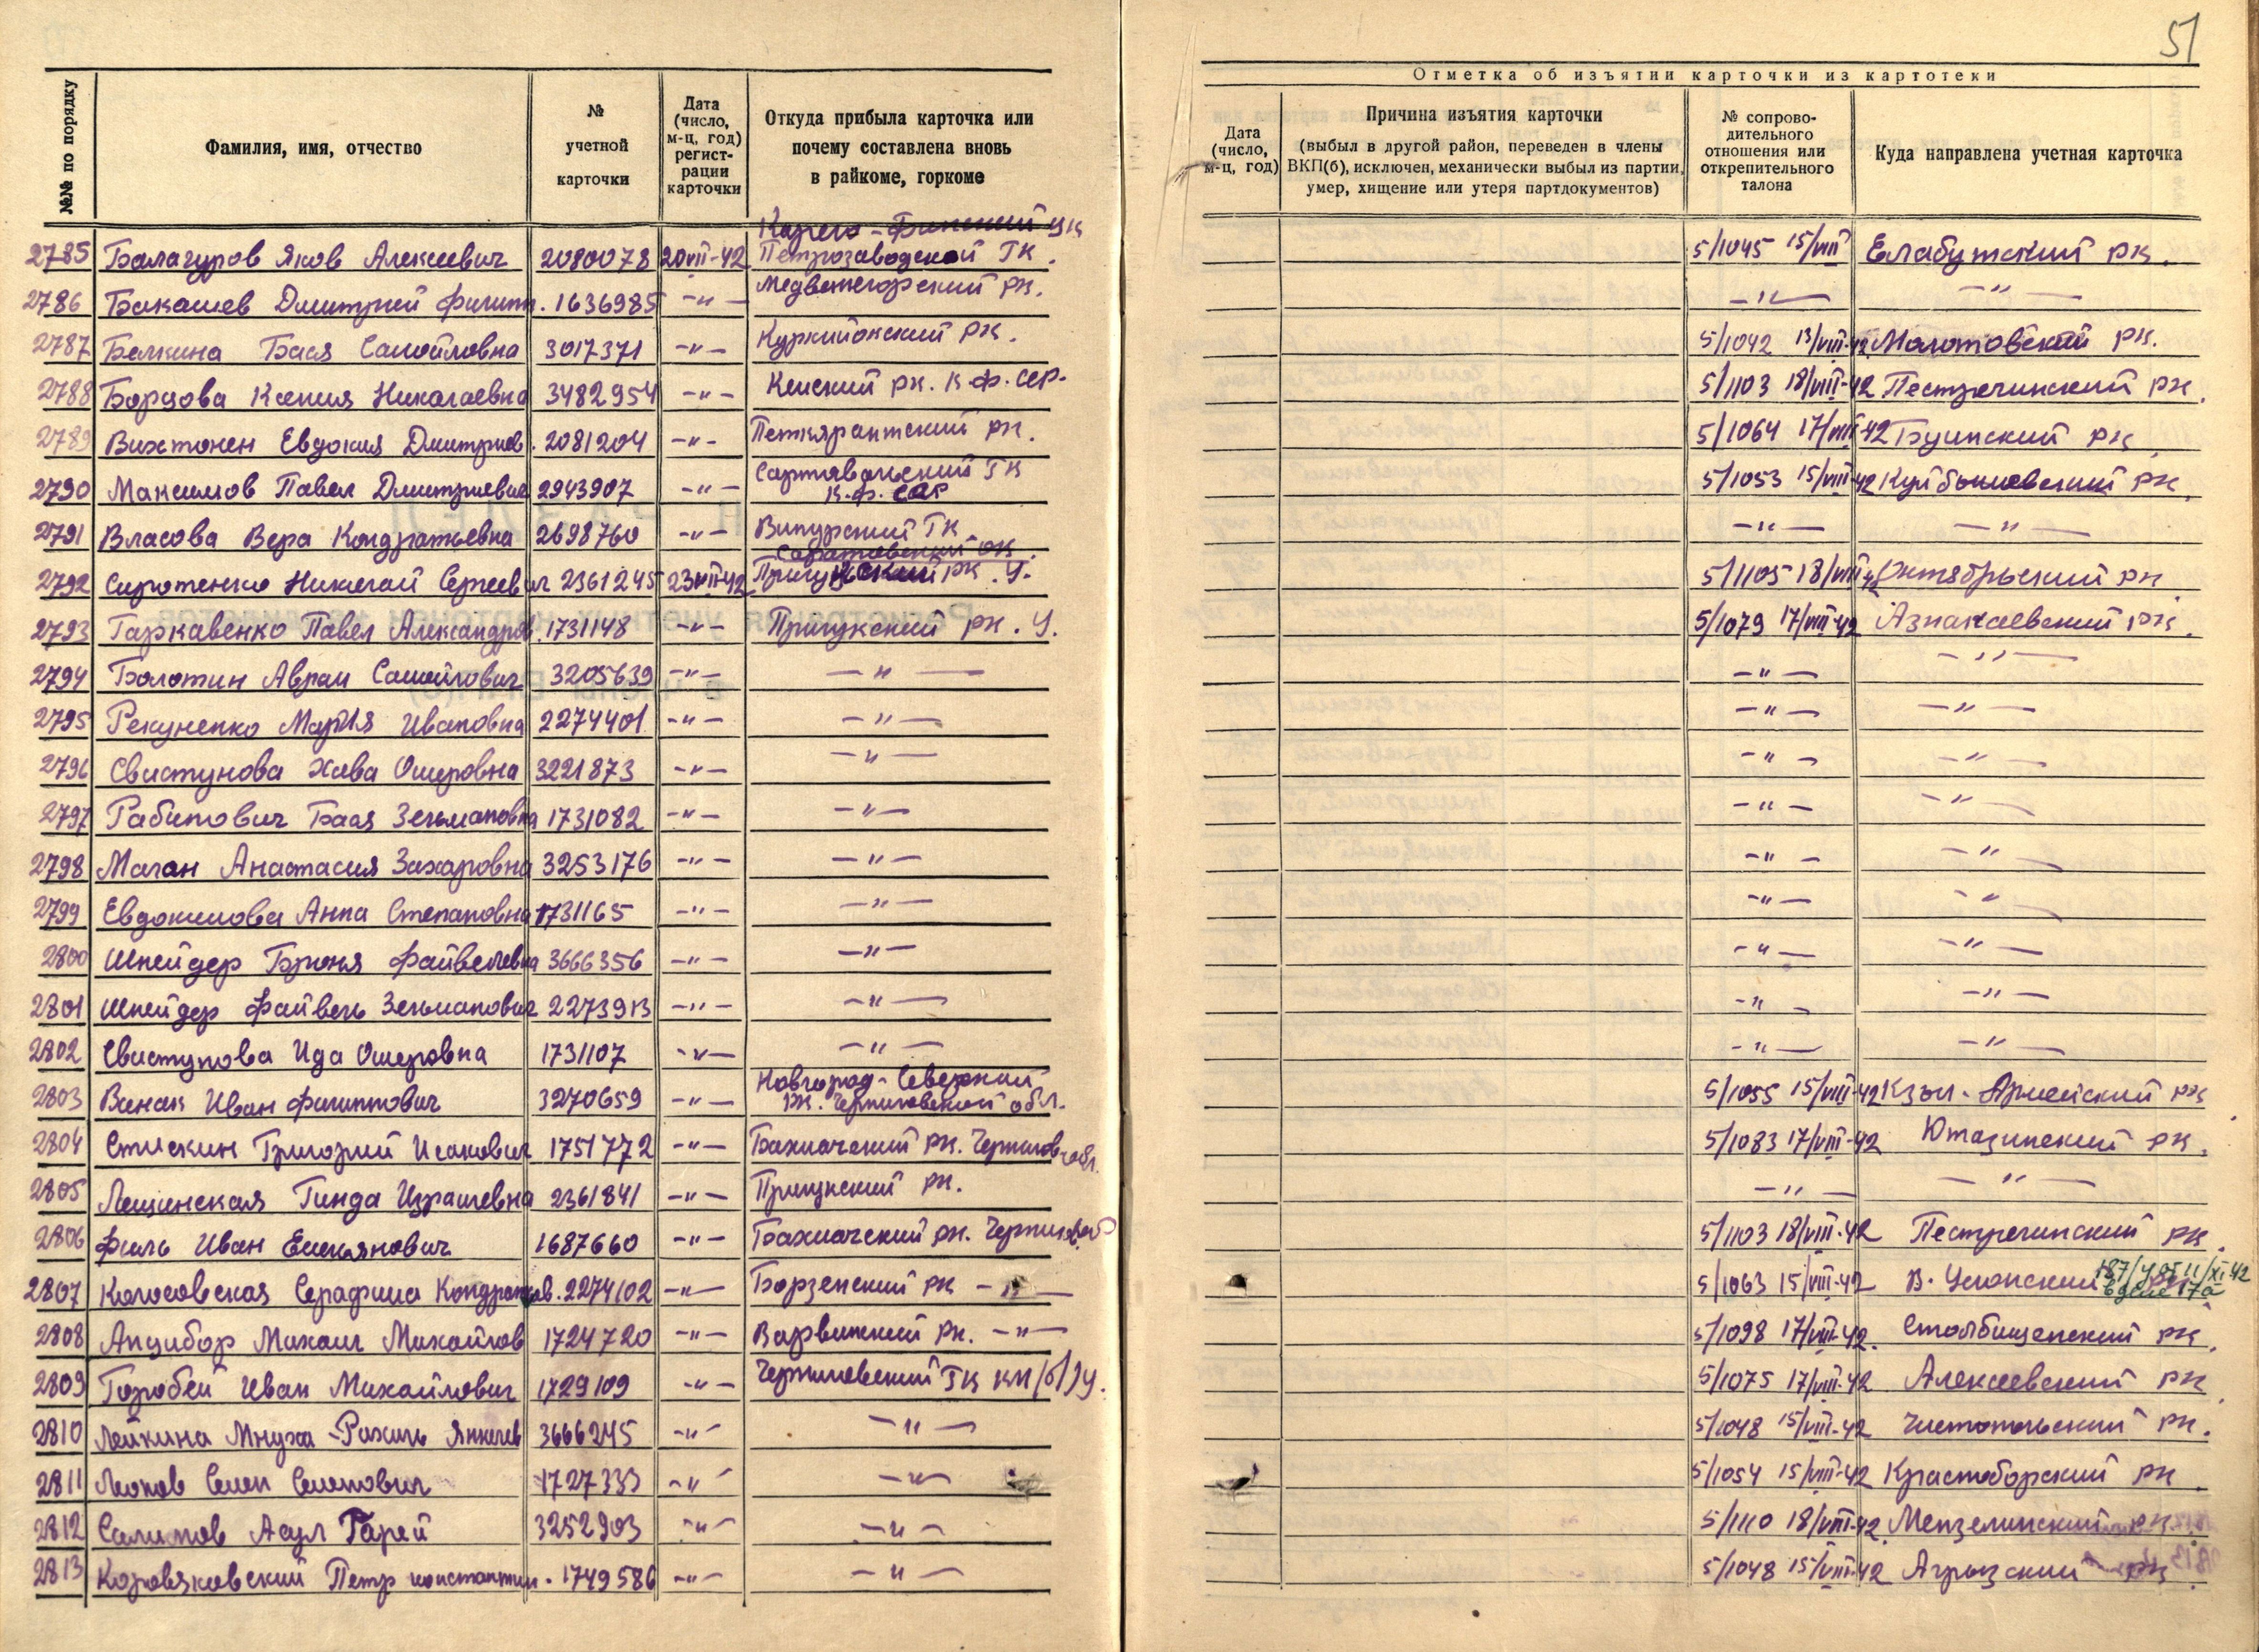 51
№№ по порядку
Фамилия, имя, отчество
№ учетной карточки
Дата (число, м-ц, год) регистрации карточки
Откуда прибыла карточка или почему составлена вновь в райкоме, горкоме
Отметка об изъятии карточки из картотеки
Дата (число, м-ц, год)
Причина изъятия карточки
(выбыл в другой район, переведен в члены ВКП(б), исключен, механически выбыл из партии, умер, хищение или утеря партдокументов)
№ сопроводительного отношения или открепительного талона
Куда направлена учетная карточка
Карело-Финский ЦК
2785 Балагуров Яков Алексеевич 2080078 20 VIII-42 Петрозаводской ГК. 5/1045 15/VIII Елабужский РК.
2786 Бакашев Дмитрий Филипп. 1636985 -"- Медвежегорский РК. -"- -"-
2787 Белкина Бася Самойловна 3017371 -"- Куркийокский РК. 5/1042 13/VIII-42 Молотовский РК.
2788 Борцова Ксения Николаевна 3482954 -"- Кемский РК. К.Ф.ССР. 5/1103 18/VIII-42 Пестречинский РК.
2789 Вихтонен Евдокия Дмитриев. 2081204 -"- Петкярантский РК. 5/1064 17/VIII-42 Буинский РК
2790 Максимов Павел Дмитриевич 2943907 -"- Сартавальский ГК К.Ф. ССР 5/1053 15/VIII-42 Куйбышевский РК.
2791 Власова Вера Кондратьевна 2698760 -"- Выпурский ГК -"- -"-
2792 Сиротенко Николай Сергеевич 2361245 23 VIII-42 Прилукский РК. У. 5/1105 18/VIII-42 Октябрьский РК
2793 Гаркавенко Павел Александров. 1731148 -"- Прилукский РК. У. 5/1079 17/VIII-42 Азнакаевский РК.
2794 Болотин Аврам Самойлович 3205639 -"- -"- -"- -"-
2795 Рекуненко Мария Ивановна 2274401 -"- -"- -"- -"-
2796 Свистунова Хава Ошеровна 3221873 -"- -"- -"- -"-
2797 Рабинович Бася Зельмановна 1731082 -"- -"- -"- -"-
2798 Маган Анастасия Захаровна 3253176 -"- -"- -"- -"-
2799 Евдокимова Анна Степановна 1731165 -"- -"- -"- -"-
2800 Шнейдер Броня Файвелевна 3666356 -"- -"- -"- -"-
2801 Шнейдер Файвель Зельманович 2273913 -"- -"- -"- -"-
2802 Свистунова Ида Ошеровна 1731107 -"- -"- -"- -"-
2803 Ванак Иван Филиппович 3270659 -"- Новгород-Северский РК. Черниговской обл. 5/1055 15/VIII-42 Кзыл-Армейский РК
2804 Стискин Григорий Исакович 1751772 -"- Бахмачский РК. Чернигов. обл. 5/1083 17/VIII-42 Ютазинский РК.
2805 Лещинская Гинда Израилевна 2361841 -"- Прилукский РК. -"- -"-
2806 Филь Иван Емельянович 1687660 -"- Бахмачский РК. Чернигов. об 5/1103 18/VIII-42 Пестречинский РК.
2807 Колосовская Серафима Кондратов. 2274102 -"- Борзенский РК -"- 5/1063 15/VIII-42 В. Услонский РК 187/У от 11/XI 42 в деле 17а
2808 Анцибор Михаил Михайлов 1724720 -"- Варвинский РК. -"- 5/1098 17/VIII-42. Столбищенский РК.
2809 Горобей Иван Михайлович 1729109 -"- Черниговский ГК КП(б)У. 5/1075 17/VIII-42 Алексеевский РК
2810 Лейкина Мнуха-Рахиль Янкелев 3666245 -"- -"- 5/1048 15/VIII-42 Чистопольский РК.
2811 Леонов Семен Семенович 1727333 -"- -"- 5/1054 15/VIII-42 Красноборский РК.
2812 Салимов Асул Гарей 3252903 -"- -"- 5/1110 18/VIII-42 Мензелинский РК.
2813 Коровяковский Петр Константин. 1749586 -"- -"- 5/1048 15/VIII-42 Агрызский РК.